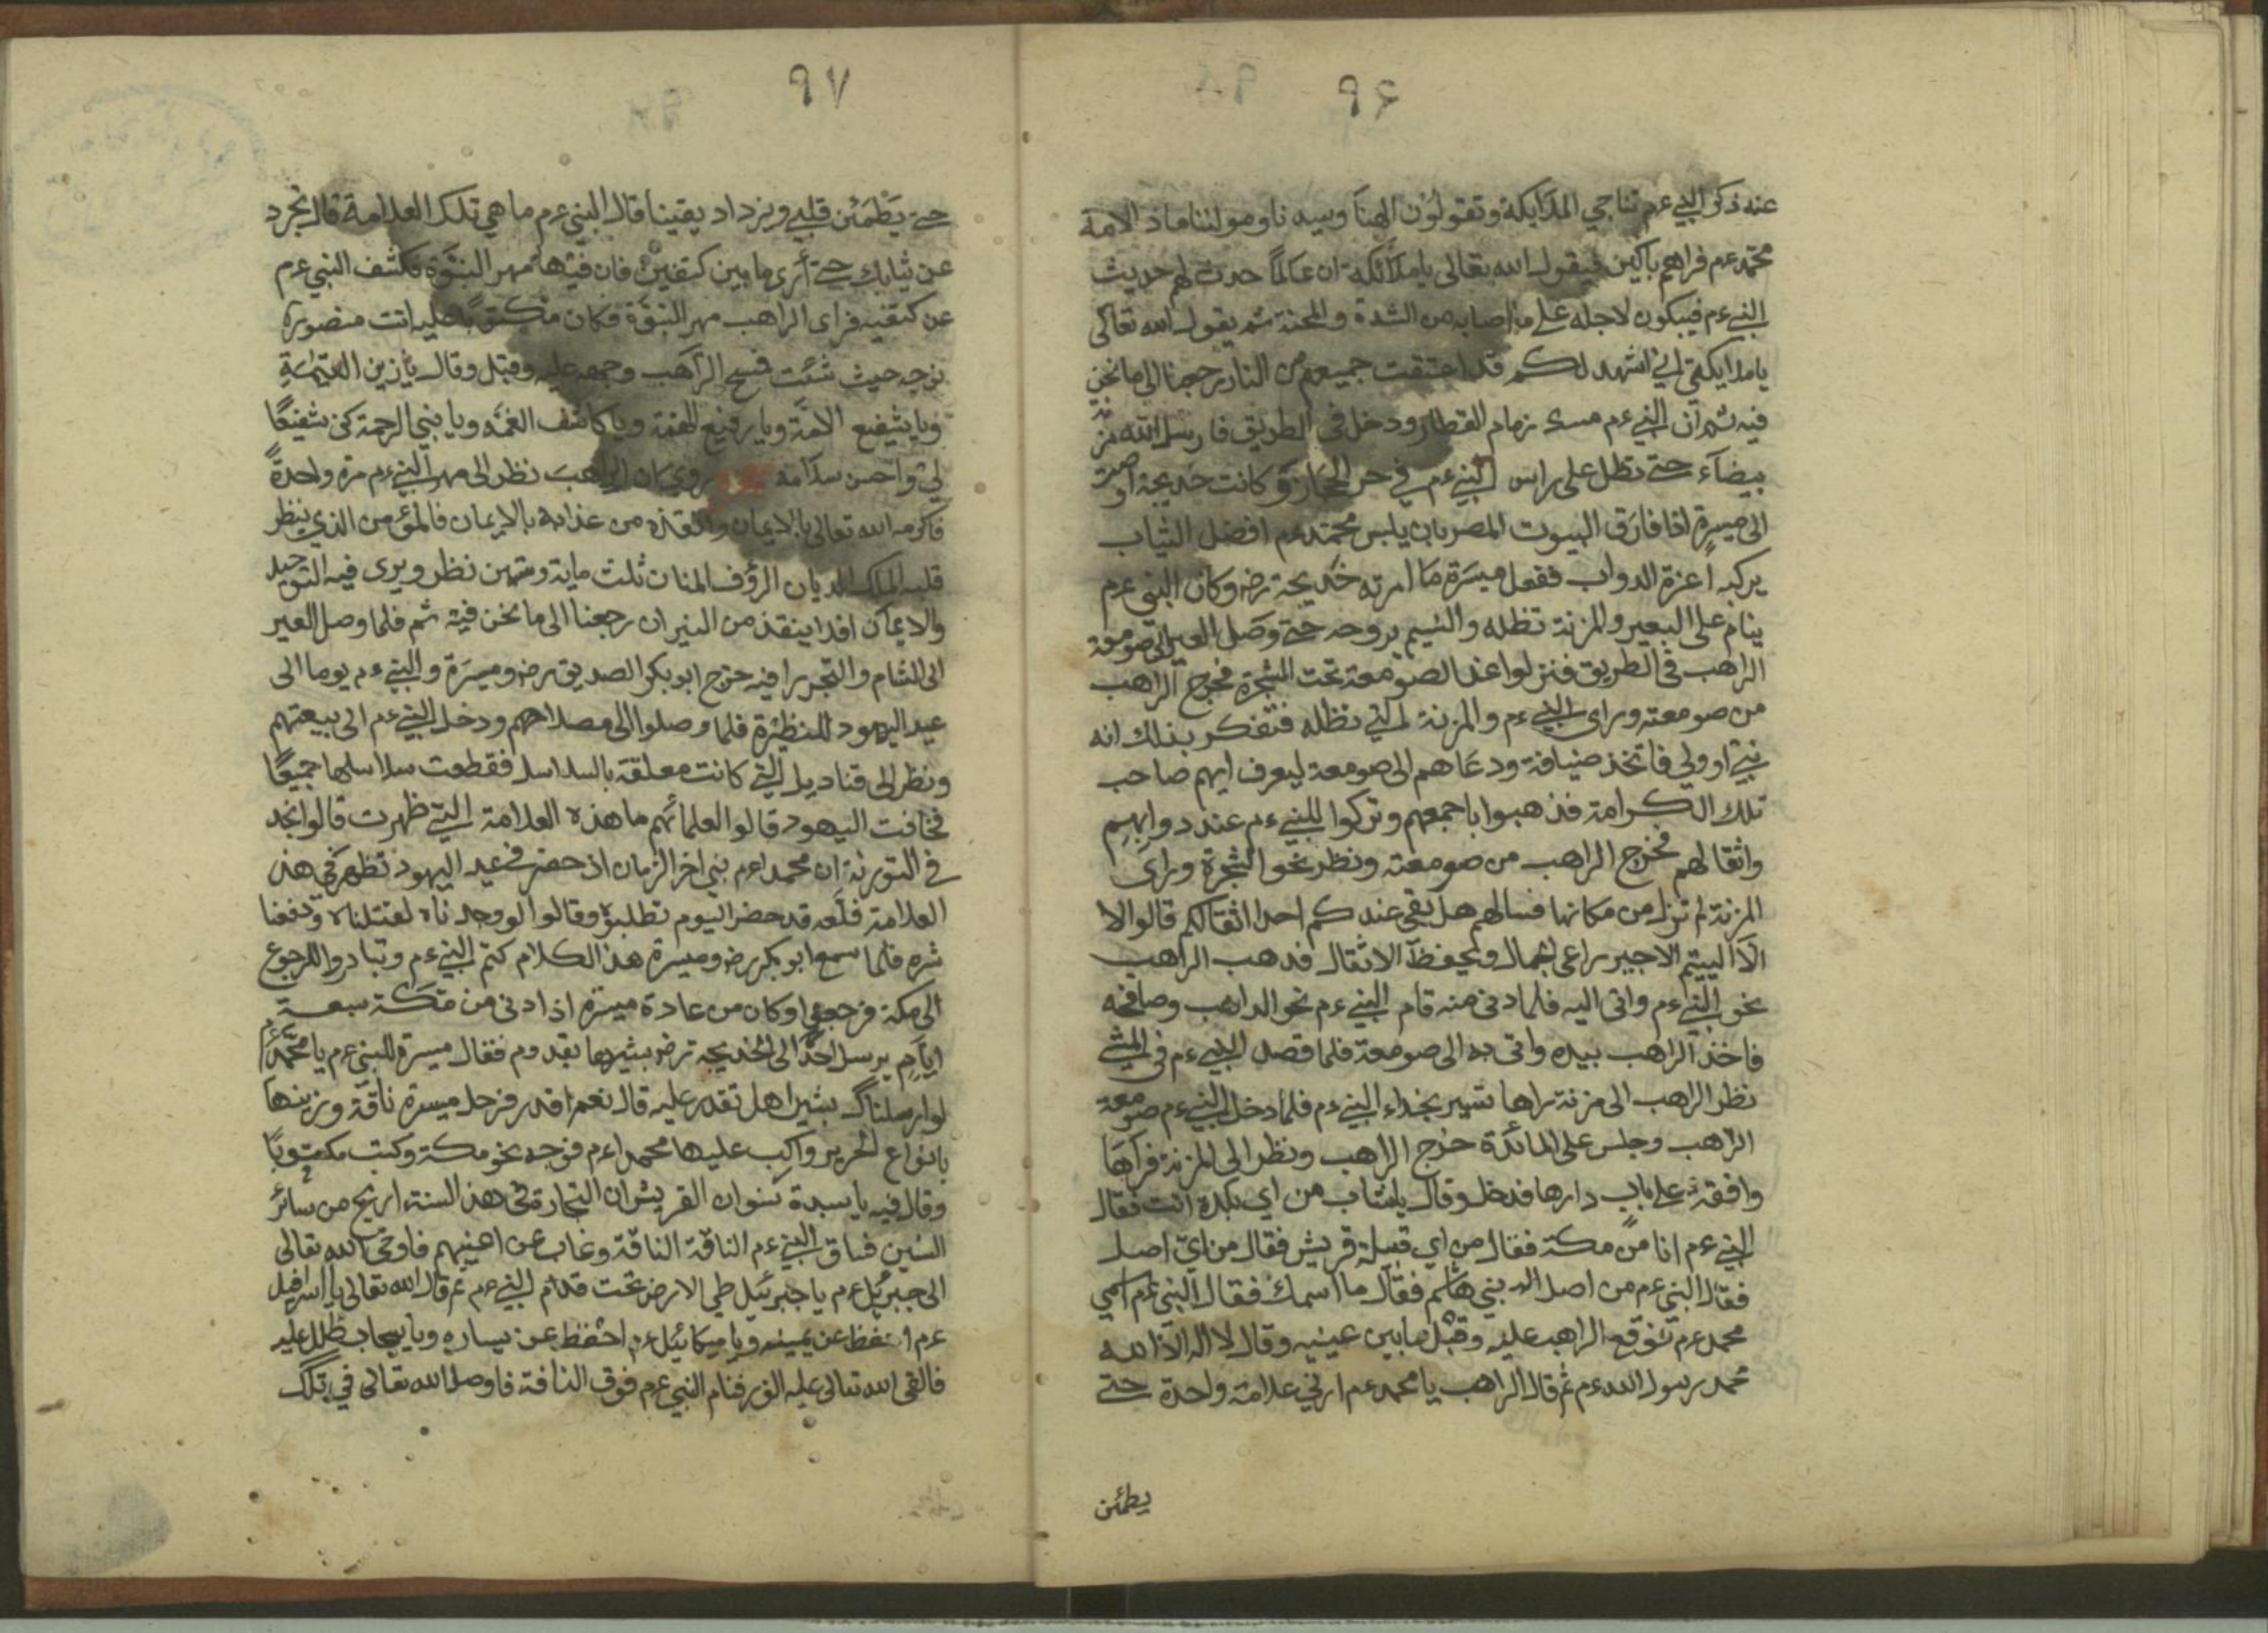 ٩۶
عنه ذكر النبي ءم تناجي الملايكة وتقولون الهنا وسيدنا ومولىنا ماذ الامة
محمد ءم فراهم باكين فيقول الله تعالى يا ملائكة ان عالمًا حدث لهم حديث
النبي ءم فيبكون لاجله على ما اصابه من الشدة والمحنة ثم يقول الله تعالى
يا ملايكتي اني اشهد لكم قد اعتقت جميعهم من النار رجعنا الى ما نحن
فيه ثم ان النبي ءم مسك زمام القطار ودخل في الطريق فارسل الله مز
بيضآء حتى تظل على راس النبي ءم في حر الحجاز وكانت خديجة اوصت
الى ميسرة اذا فارق البيوت المصر بان يلبس محمد ءم افضل الثياب
يركبه اعزة الدواب ففعل ميسرة ما امرته خديجة رض وكان النبي ءم
ينام على البعير والمزنة تظله والنسيم يروحه حتى وصل العير الى صومعة
الراهب في الطريق فنزلوا عند الصومعة تحت الشجرة فخرج الراهب
من صومعته وراى النبي ءم والمزنة التي تظله فتفكر بذلك انه
نبي او ولي فاتخذ ضيافة ودعاهم الى صومعة ليعرف ايهم صاحب
تلك الكرامة فذهبوا باجمعهم وتركوا للنبي ءم عند دوابهم
واثقالهم فخرج الراهب من صومعته ونظر نحو الشجرة وراى
المزنة لم تزل من مكانها فسالهم هل بقي عندكم احدا اثقالكم قالوا لا
الا اليتيم الاجير راعى الجمال ويحفظ الاثقال فذهب الراهب
نحو النبي ءم واتى اليه فلما دنى منه قام النبي ءم نحو الراهب وصافحه
فاخذ الراهب بيده واتى به الى صومعة فلما قصد النبي ءم في المشي
نظر الراهب الى مزنة يراها تسير بحذاء النبي ءم فلما دخل النبي ءم صومعة
الراهب وجلس على المائدة خرج الراهب ونظر الى المزنة فرآها
واقفة على باب دارها فدخل وقال يا شاب من اي بلدة انت فقال
النبي ءم انا من مكة فقال من اي قبيلة قريش فقال من اي اصل
فقال النبي ءم من اصل بني هاشم فقال ما اسمك فقال النبي ءم اسمي
محمد ءم فوقع الراهب عليه وقبل ما بين عينيه وقال لا اله الا الله
محمد رسول الله ءم ثم قال الراهب يا محمد ءم ارني علامة واحدة حتى
يطمئن
٩٧
حتى يطمئن قلبي ويزداد يقينا قال النبي ءم ما هي تلك العلامة قال تجرد
عن ثيابك حتى أرى ما بين كتفين فان فيها مهر النبوة فكشف النبي ءم
عن كتفيه فراى الراهب مهر النبوة فكان مكتوبًا عليه انت منصوره
توجه حيث شئت فمسح الراهب وجهه عليه وقبل وقال يا زين القيمة
ويا شفيع الامة ويا رفيع الهمة ويا كاشف الغمه ويا نبي الرحمة كن شفيعًا
لي واحسن سلامه روي ان الراهب نظر الى مهر النبي ءم مرة واحدةً
فاكرمه الله تعالى بالايمان وانقذه من عذابه بالايمان فالمؤمن الذي ينظر
قلبه الملك الديان الرؤف المنان ثلث ماية وستين نظر ويرى فيه التوحيد
والايمان افدا ينقذ من النيران رجعنا الى ما نحن فيه ثم فلما وصل العير
الى الشام واتجروا فيه خرج ابو بكر الصديق رض وميسرة والنبي ءم يوما الى
عيد اليهود للنظرة فلما وصلوا الى مصلاهم ودخل النبي ءم الى بيعتهم
ونظر الى قناديل التي كانت معلقة بالسلاسل فقطعت سلاسلها جميعًا
فخافت اليهود قالوا لعلمائهم ما هذه العلامة التي ظهرت قالوا نجد
في التورية ان محمدا ءم نبي اخر الزمان اذ حضر في عيد اليهود تظهر في هذ
العلامة فلعه قد حضر اليوم تطلبوه وقالوا لو وجدناه لقتلناه ودفعنا
شره فلما سمع ابو بكر رض وميسرة هذ الكلام كتم النبي ءم وتبادروا للرجوع
الى مكة فرجعوا وكان من عادة ميسرة اذا دنى من مكة سبعة
ايام يرسل احدًا الى الخديجه رض بشيرها بقدوم فقال ميسرة للنبي ءم يا محمد ءم
لو ارسلناك بشيرا هل تقدر عليه قال نعم اقدر فرحل ميسرة ناقة وزينها
بانواع الحرير واركب عليها محمدا ءم فوجه نحو مكة وكتب مكتوبًا
وقال فيه يا سيدة نسوان القريش ان التجارة في هذ السنة اربح من سائر
السنين فساق النبي ءم الناقة الناقة وغاب عن اعينهم فاوحى الله تعالى
الى جبرئيل ءم يا جبرئيل طي الارض تحت قدام النبي ءم ثم قال الله تعالى يا اسرافيل
ءم احفظ عن يمينه ويا ميكائيل ءم احفظ عن يساره ويا سحاب ظلل عليه
فالقى الله تعالى عليه النوم فنام النبي ءم فوق الناقة فاوصل الله تعالى في تلك